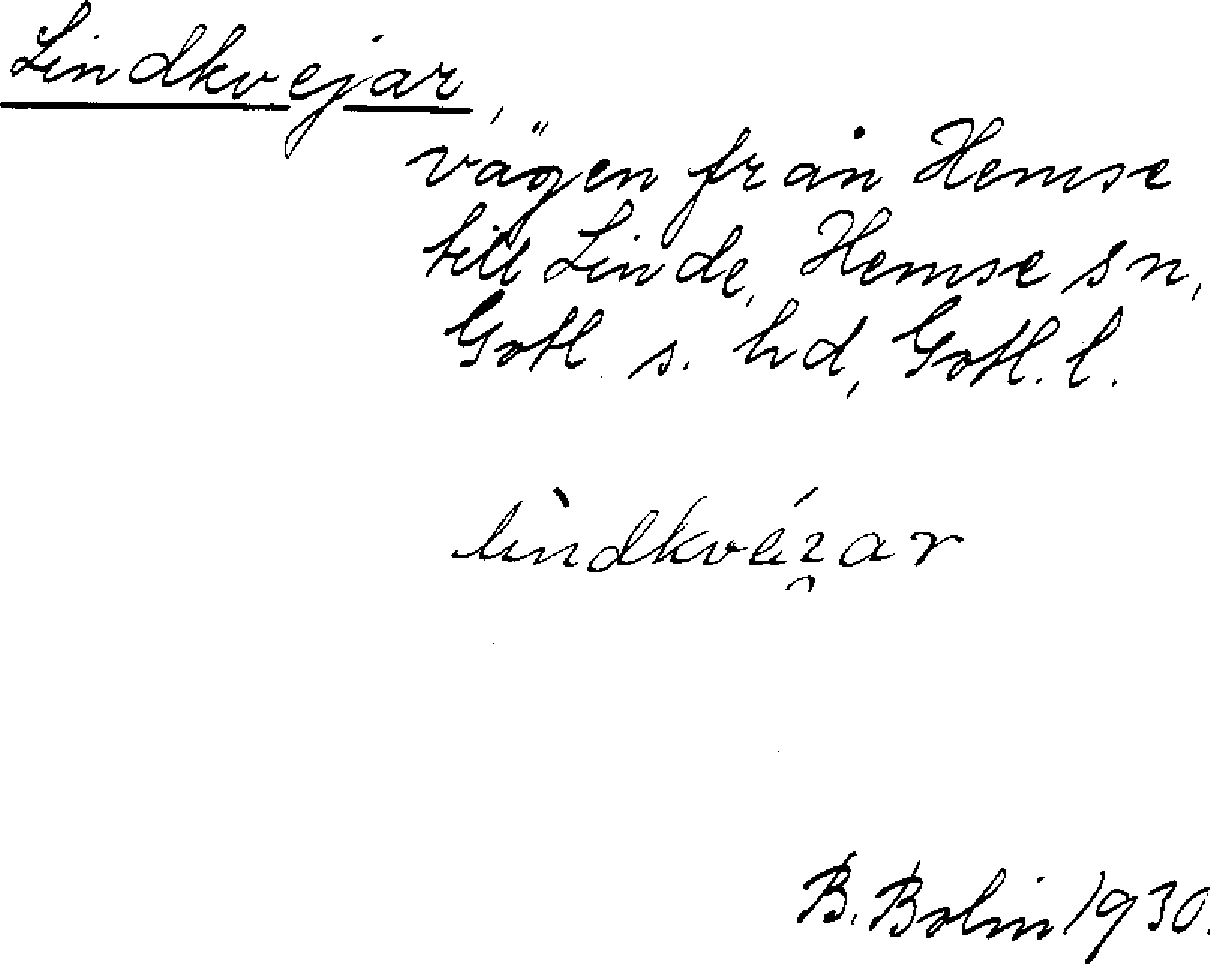 Lindkvejar,
vägen från Hemse
till Linde, Hemse sn,
Gotl. s. hd, Gotl. l.
lìndkvéɪ̯ar
B. Bolin 1930.